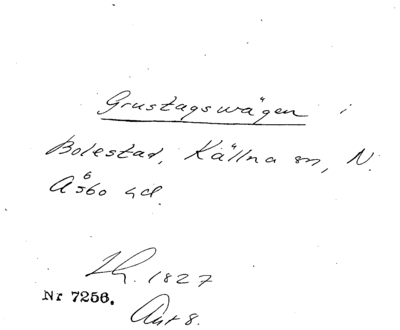 Grustagsvägen i
Bolestad, Källna sn, N.
Åsbo hd.
Lh. 1827
Nr 7256.
Ant 8.